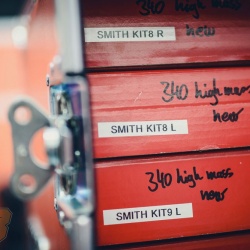 340 high mass
new
SMITH KIT8 R
340 high mass
new
SMITH KIT8 L
340 high mass
new
SMITH KIT9 L